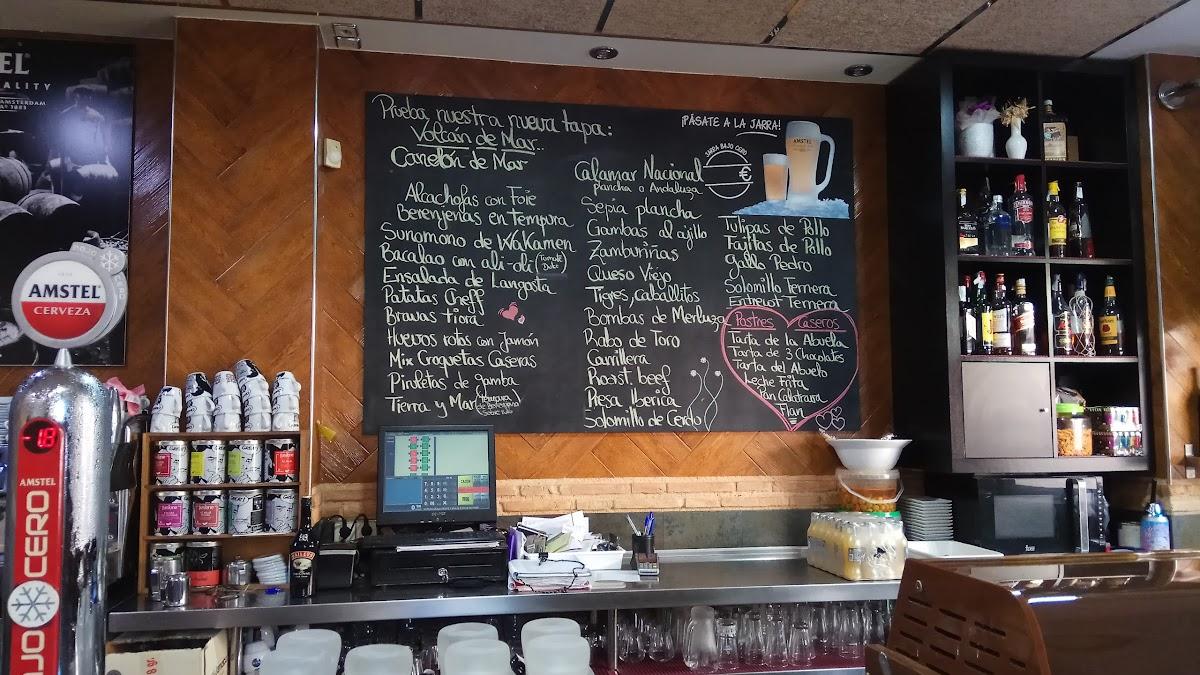 EL
ALITY
AMSTERDAM
AMSTEL
CERVEZA
-1.8
AMSTEL
JO CERO
Prueba nuestra nueva tapa:
Volcán de Mar..
Canelón de Mar
Alcachofas con Foie
Berenjenas en tempura
Sunomono de Wakamen
Bacalao con ali-oli
Tomate
Dulce
Ensalada de Langosta
Patatas Cheff
Bravas tiora
Huevos rotos con Jamón
Mix Croquetas Caseras
Piruletas de gamba
Tierra y Mar
Calamar Nacional
plancha o Andaluza
Sepia plancha
Gambas al ajillo
Zamburiñas
Queso Viejo
Tigres, caballitos
Bombas de Merluza
Rabo de Toro
Carrillera
Roast beef
Presa Iberica
Solomillo de Cerdo
¡PÁSATE A LA JARRA!
JARRA BAJO CERO
€
AMSTEL
Tulipas de Pollo
Fajitas de Pollo
Gallo Pedro
Solomillo Ternera
Entrecot Ternera
Postres Caseros
Tarta de la Abuela
Tarta de 3 Chocolates
Tarta del Abuelo
Leche Frita
Pan Calatrava
Flan
BAILEYS